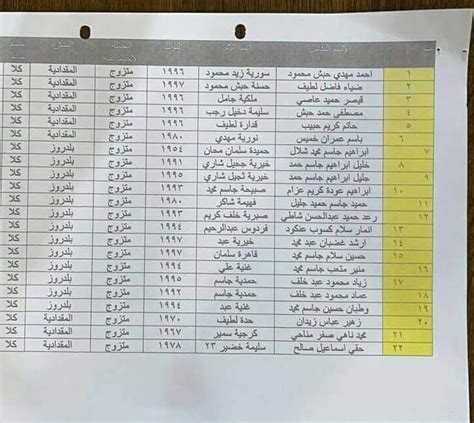 ١ احمد مهدي حبش محمود سورية زيد محمود ١٩٩٦ متزوج المقدادية كلا
٢ ضياء فاضل لطيف حسنة حبش محمود ١٩٩٧ متزوج المقدادية كلا
٣ قيصر حميد عاصي ملكية جامل ١٩٩٦ متزوج المقدادية كلا
٤ مصطفى حمد حبش سليمة دخيل رجب ١٩٩٦ متزوج المقدادية كلا
٥ حاتم كريم حبيب قدارة لطيف ١٩٩٦ متزوج المقدادية كلا
٦ باسم عمران خميس نورية مهدي ١٩٨٠ متزوج المقدادية كلا
٧ ابراهيم جاسم محمد شلال حميدة سلمان محان ١٩٥٤ متزوج بلدروز كلا
٨ خليل ابراهيم جاسم حمد خيرية جحيل شاري ١٩٩١ متزوج بلدروز كلا
٩ جليل ابراهيم جاسم محمد خيرية ثجيل شاري ١٩٩٥ متزوج بلدروز كلا
١٠ ابراهيم عودة كريم عزام صبيحة جاسم محمد ١٩٩٣ متزوج بلدروز كلا
١١ حميد جاسم حميد جليل فهيمة شاكر ١٩٨٠ متزوج بلدروز كلا
١٢ رعد حميد عبدالحسن شاطي صبرية خلف كريم ١٩٩٣ متزوج بلدروز كلا
١٣ انمار سلام كسوب عنكود فردوس عبدالرحيم ١٩٩٤ متزوج بلدروز كلا
١٤ ارشد غضبان عبد محمد خيرية عبد ١٩٩٧ متزوج بلدروز كلا
١٥ حسين سلام جاسم محمد قاهرة سلمان ١٩٩٧ متزوج بلدروز كلا
١٦ منير متعب جاسم محمد غنية علي ١٩٩٤ متزوج بلدروز كلا
١٧ زياد محمود عبد خلف حمدية جاسم ١٩٩٥ متزوج بلدروز كلا
١٨ عماد محمود عبد خلف حمدية جاسم ١٩٩٢ متزوج بلدروز كلا
١٩ وطبان حسين جاسم محمد غنية عبد ١٩٩٤ متزوج بلدروز كلا
٢٠ زهير عباس زيدان حدة لطيف ١٩٧٠ متزوج المقدادية كلا
٢١ محمد ناهي صفر مناحي كرجية سمير ١٩٦٧ متزوج المقدادية كلا
٢٢ حقي اسماعيل صالح سليمة خضير ٢٣ ١٩٧٨ متزوج المقدادية كلا